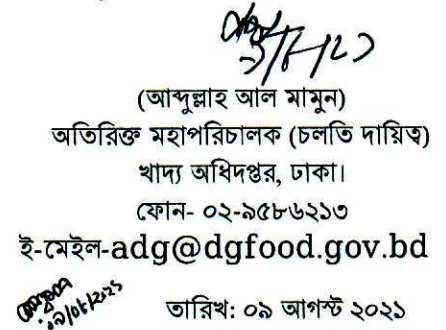 (আব্দুল্লাহ আল মামুন)
অতিরিক্ত মহাপরিচালক (চলতি দায়িত্ব)
খাদ্য অধিদপ্তর, ঢাকা।
ফোন- ০২-৯৫৮৬২১৩
ই-মেইল-adg@dgfood.gov.bd
তারিখ: ০৯ আগস্ট ২০২১